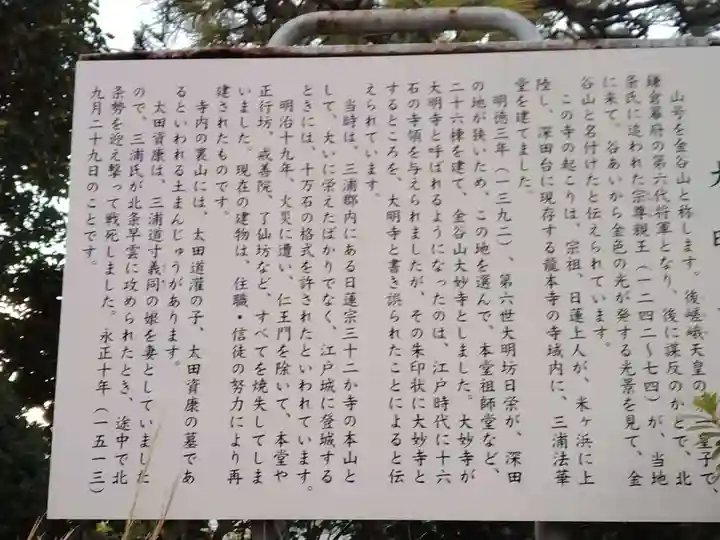 大明寺
山号を金谷山と称します。後嵯峨天皇の一皇子で、
鎌倉幕府の第六代将軍となり、後に謀反のかどで、北
条氏に追われた宗尊親王（一二四二〜七四）が、当地
に来て、谷あいから金色の光が発する光景を見て、金
谷山と名付けたと伝えられています。
この寺の起こりは、宗祖、日蓮上人が、米ヶ浜に上
陸し、深田台に現存する龍本寺の寺域内に、三浦法華
堂を建てました。
明徳三年（一三九二）、第六世大明坊日栄が、深田
の地が狭いため、この地を選んで、本堂祖師堂など、
二十六棟を建て、金谷山大妙寺としました。大妙寺が
大明寺と呼ばれるようになったのは、江戸時代に十六
石の寺領を与えられましたが、その朱印状に大妙寺と
するところを、大明寺と書き誤られたことによると伝
えられています。
当時は、三浦郡内にある日蓮宗三十二か寺の本山と
して、大いに栄えたばかりでなく、江戸城に登城する
ときには、十万石の格式を許されたといわれています。
明治十九年、火災に遭い、仁王門を除いて、本堂や
正行坊、戒善院、了仙坊など、すべてを焼失してしま
いました。現在の建物は、住職・信徒の努力により再
建されたものです。
寺内の裏山には、太田道灌の子、太田資康の墓であ
るといわれる土まんじゅうがあります。
太田資康は、三浦道寸義同の娘を妻としていました
ので、三浦氏が北条早雲に攻められたとき、途中で北
条勢を迎え撃って戦死しました。永正十年（一五一三）
九月二十九日のことです。